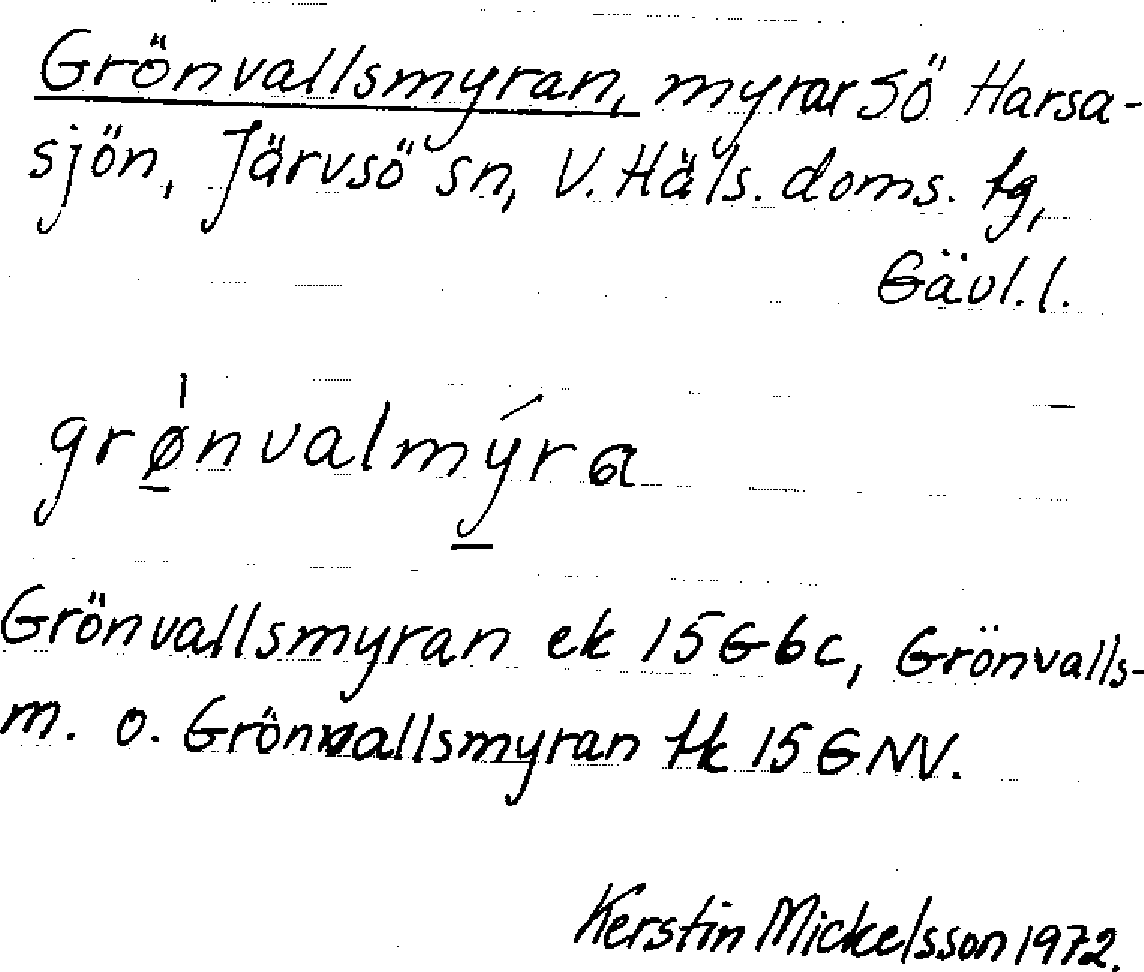 Grönvallsmyran, myrar SÖ Harsa-
sjön, Järvsö sn, V. Häls. doms. tg,
Gävl. l.
grø̱̍nvalmý̱ra
Grönvallsmyran ek 15G6c, Grönvalls-
m. o. Grönvallsmyran tk 15 G NV.
Kerstin Mickelsson 1972.